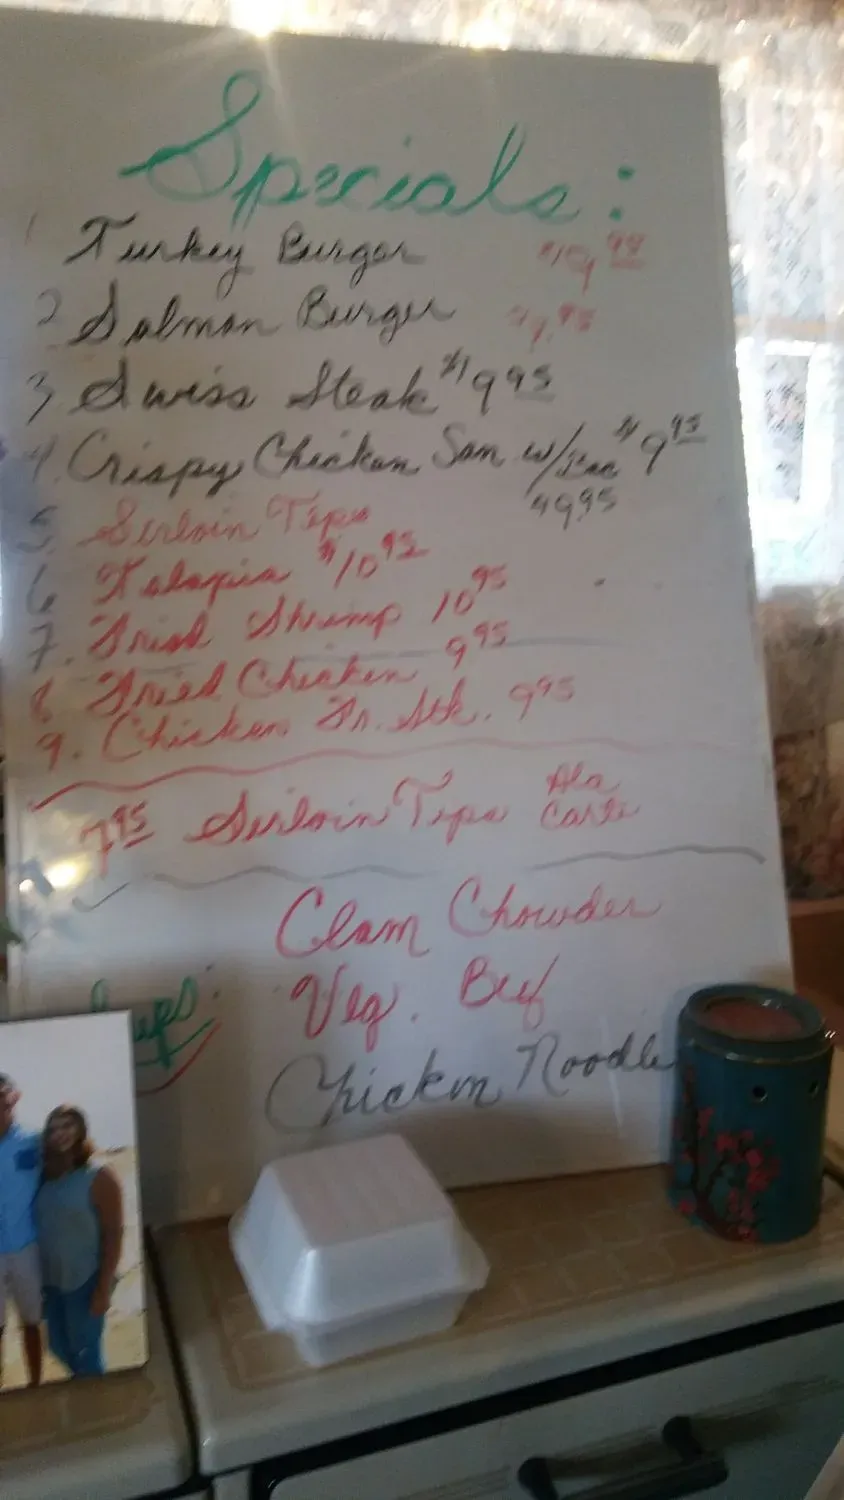 Specials:
1 Turkey Burger
2 Salmon Burger
3 Swiss Steak $ 9 95
4. Crispy Chicken San w/ Bac $ 9 95
5 Sirloin Tips
6 Talapia $ 10 95
7. Fried Shrimp 10 95
8 Fried Chicken 9 95
9. Chicken Fr. Stk. 9 95
7 95 Sirloin Tips Ala Carte
Clam Chowder
Veg. Beef
Chicken Noodle